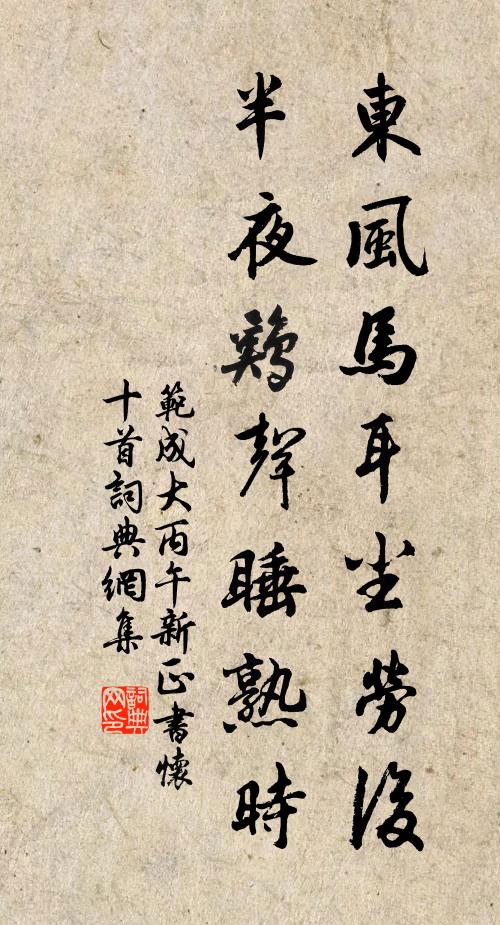 東風馬耳塵勞後
半夜鷄聲睡熟時
範成大丙午新正書懷
十首詞典網集
詞典
网印